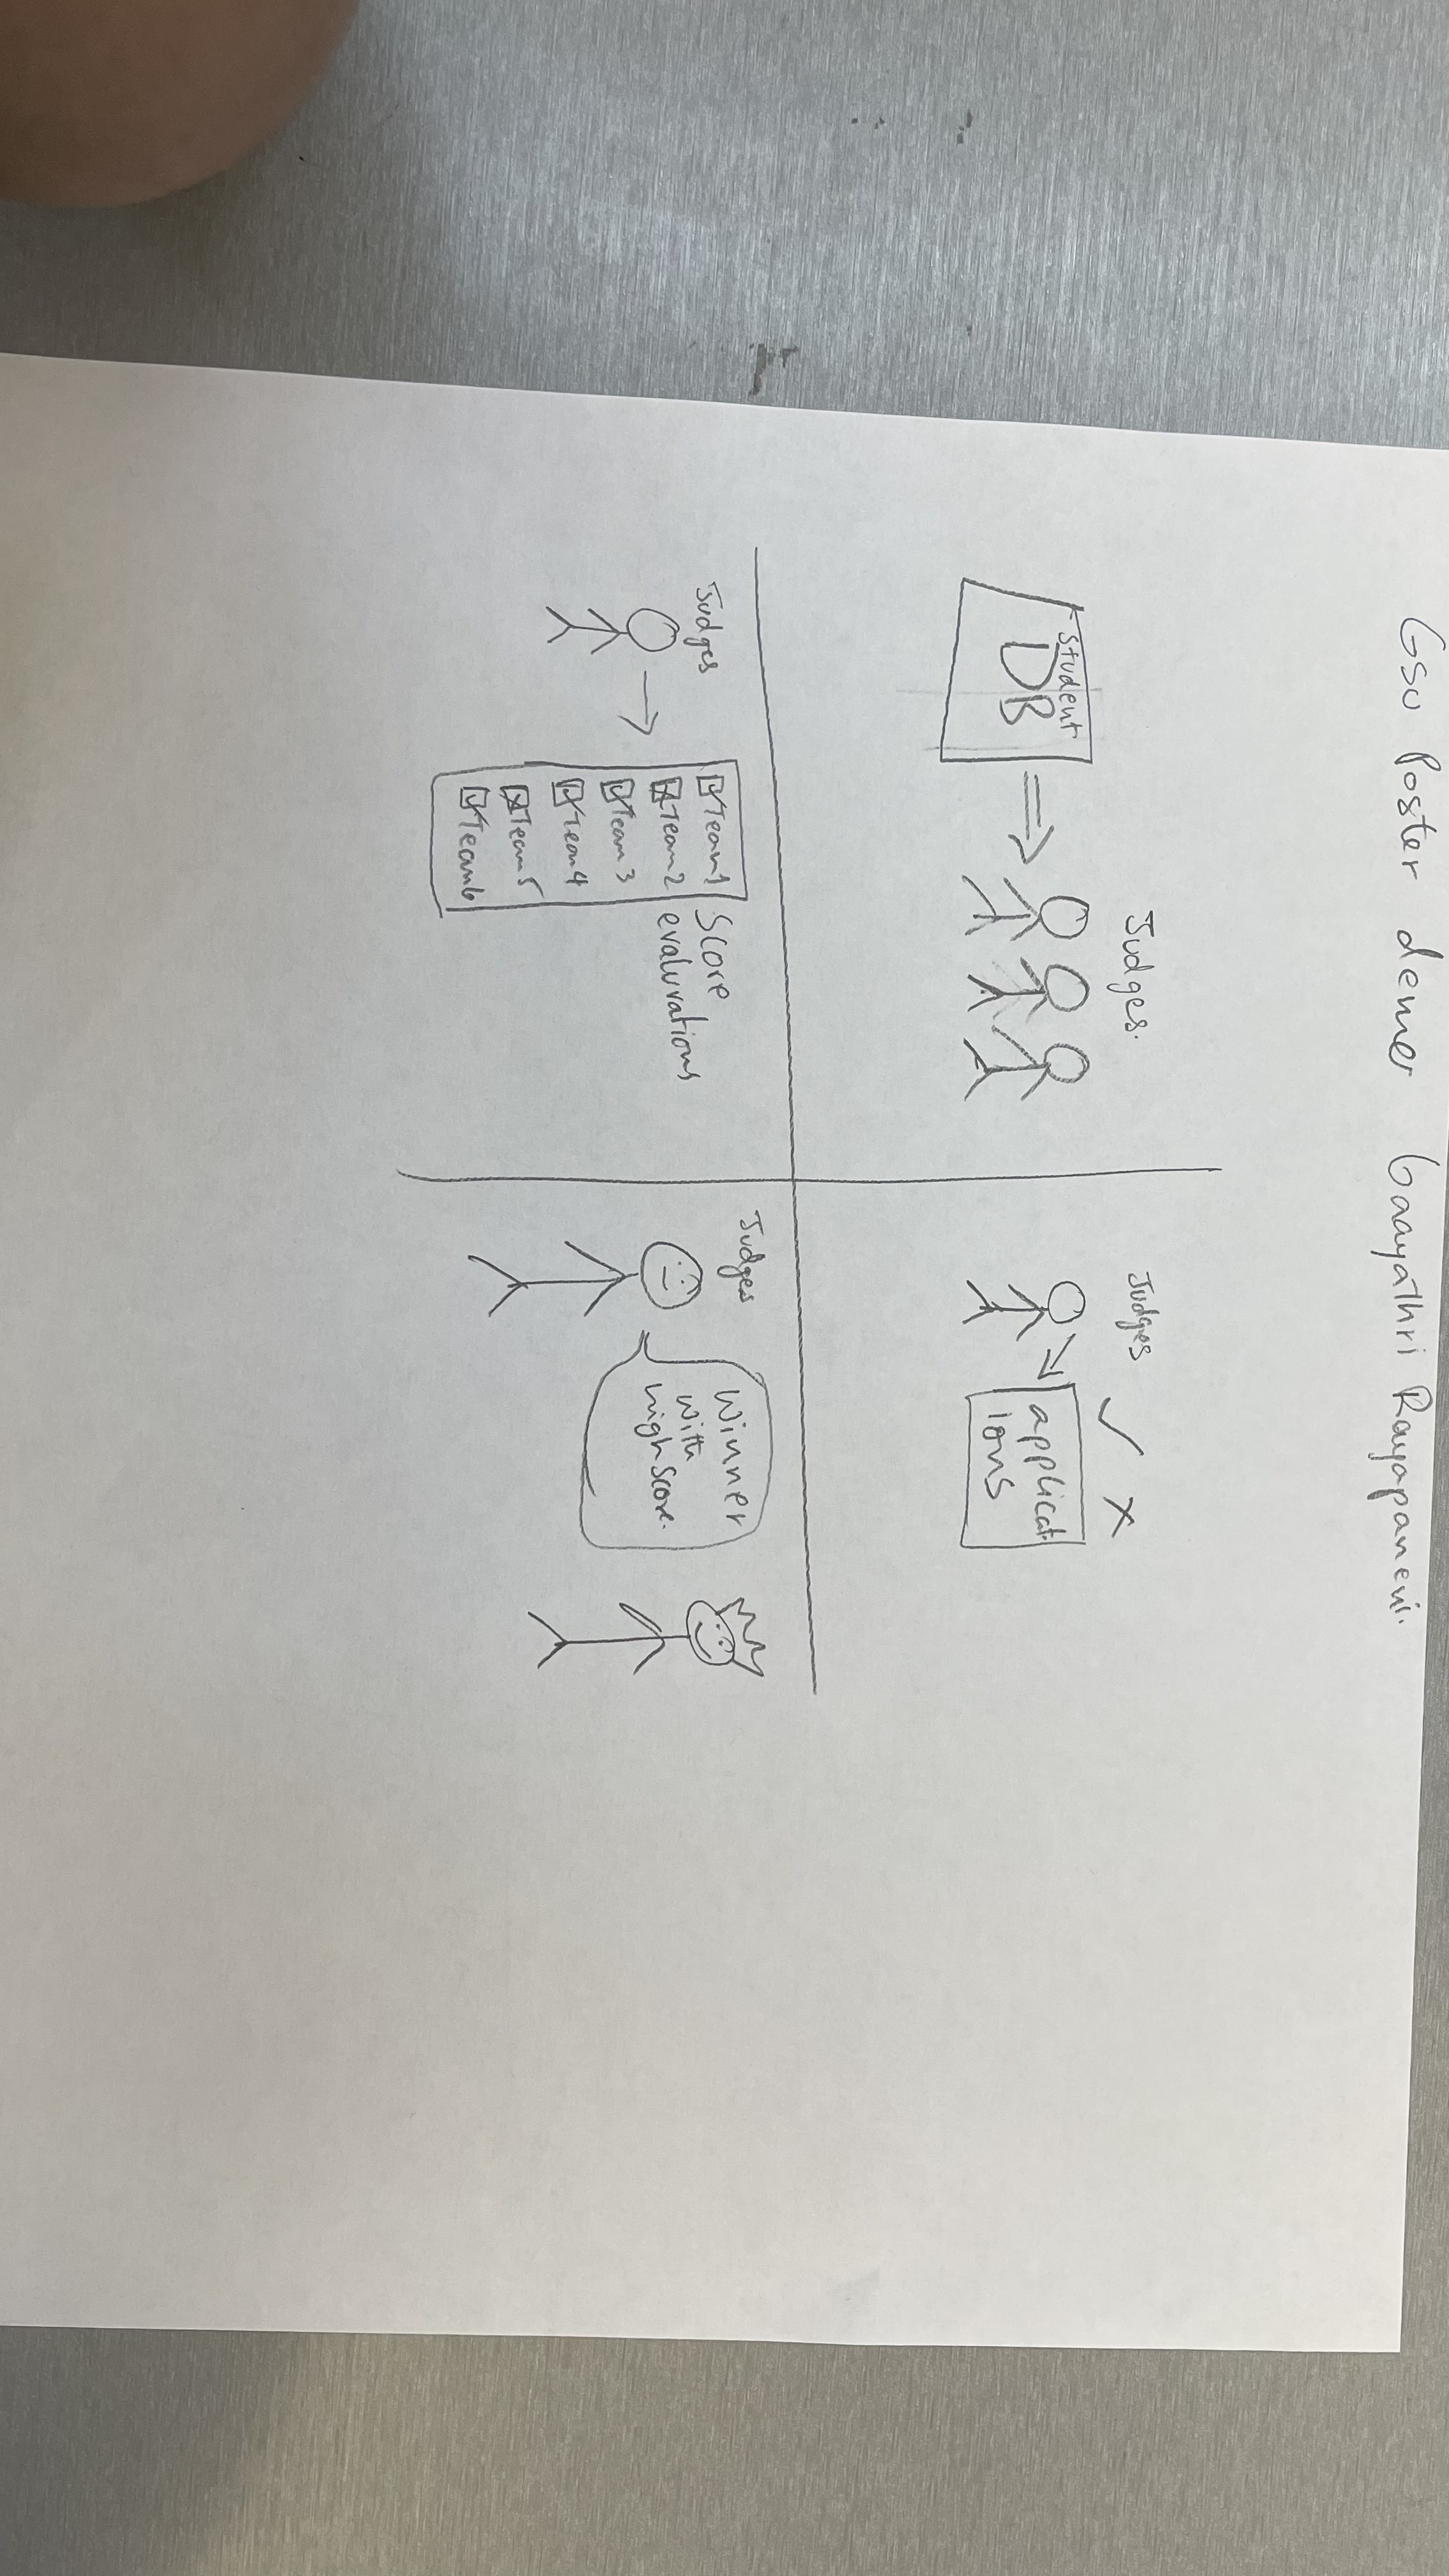 GSU Poster demer Gaayathri Rayapaneni.
Judges.
Student
DB
Judges
✓ X
applicat
ions
Judges
Team1
Team2
Team3
Team4
Team5
Team6
Score
evaluvations
Judges
Winner
with
high score.